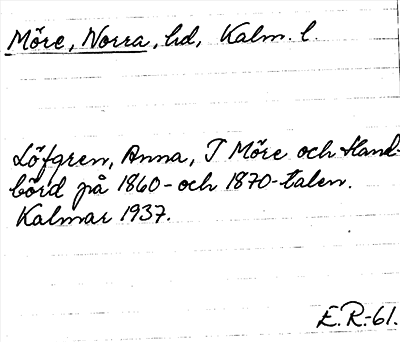 Möre, Norra, hd, Kalm. l.
Löfgren, Anna, I Möre och Hand-
börd på 1860- och 1870-talen.
Kalmar 1937.
E.R.-61.